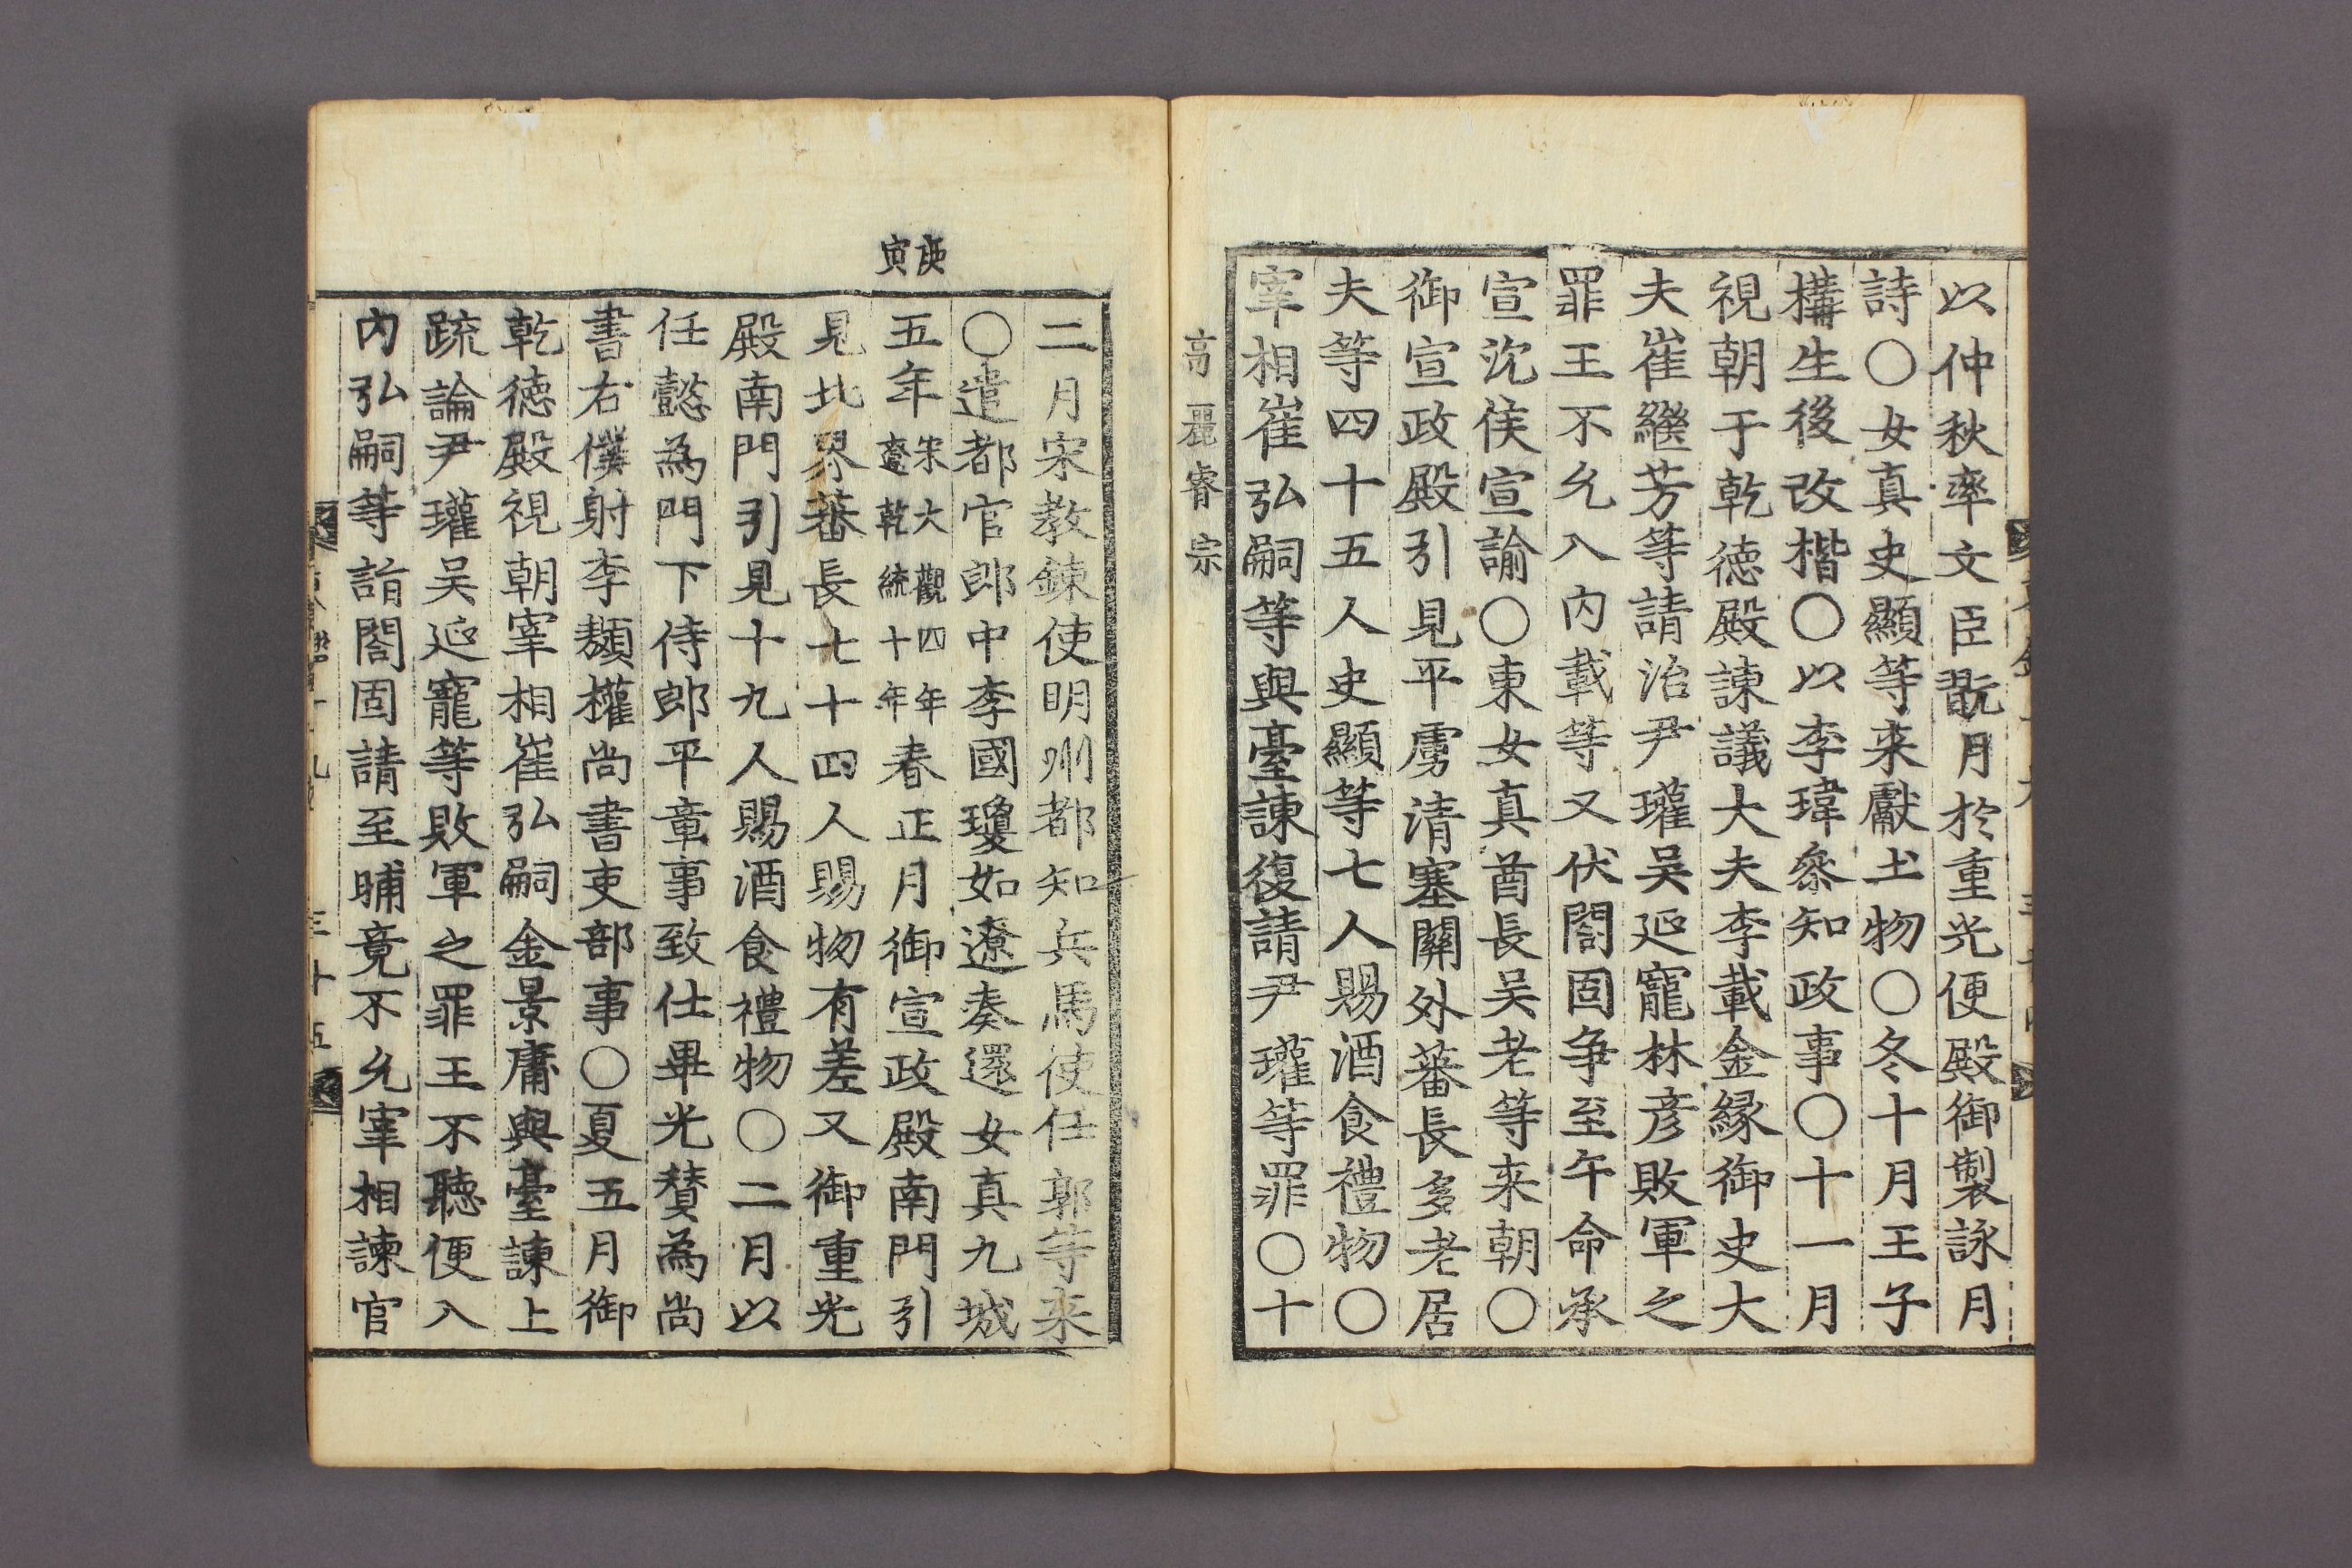 以仲秋率文臣翫月於重光便殿御製詠月
詩○女真史顯等来獻土物○冬十月王子
構生後改楷○以李瑋叅知政事○十一月
視朝于乾德殿諫議大夫李載金縁御史大
夫崔繼芳等請治尹瓘吴延寵林彦敗軍之
罪王不允入内載等又伏閤固争至午命承
宣沈侯宣諭○東女真酋長吴老等来朝○
御宣政殿引見平虜清塞關外蕃長多老居
夫等四十五人史顯等七人賜酒食禮物○
宰相崔弘嗣等與臺諫復請尹瓘等罪○十
高麗睿宗
二月宋教鍊使明州都知兵馬使任郭等来
○遣都官郎中李國瓊如遼奏還女真九城
庚寅
五年宋大觀四年遼乾統十年春正月御宣政殿南門引
見北界蕃長七十四人賜物有差又御重光
殿南門引見十九人賜酒食禮物○二月以
任懿為門下侍郎平章事致仕畢光賛為尚
書右僕射李䫨權尚書吏部事○夏五月御
乾德殿視朝宰相崔弘嗣金景庸與臺諫上
疏論尹瓘吴延寵等敗軍之罪王不聽便入
内弘嗣等詣閤固請至晡竟不允宰相諫官
三十五